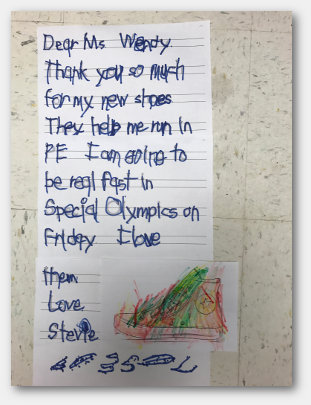 Dear Ms. Wendy
Thank you so much
for my new shoes
They help me run in
PE I am going to
be real fast in
Special Olympics on
Friday I love
them
Love
Stevie